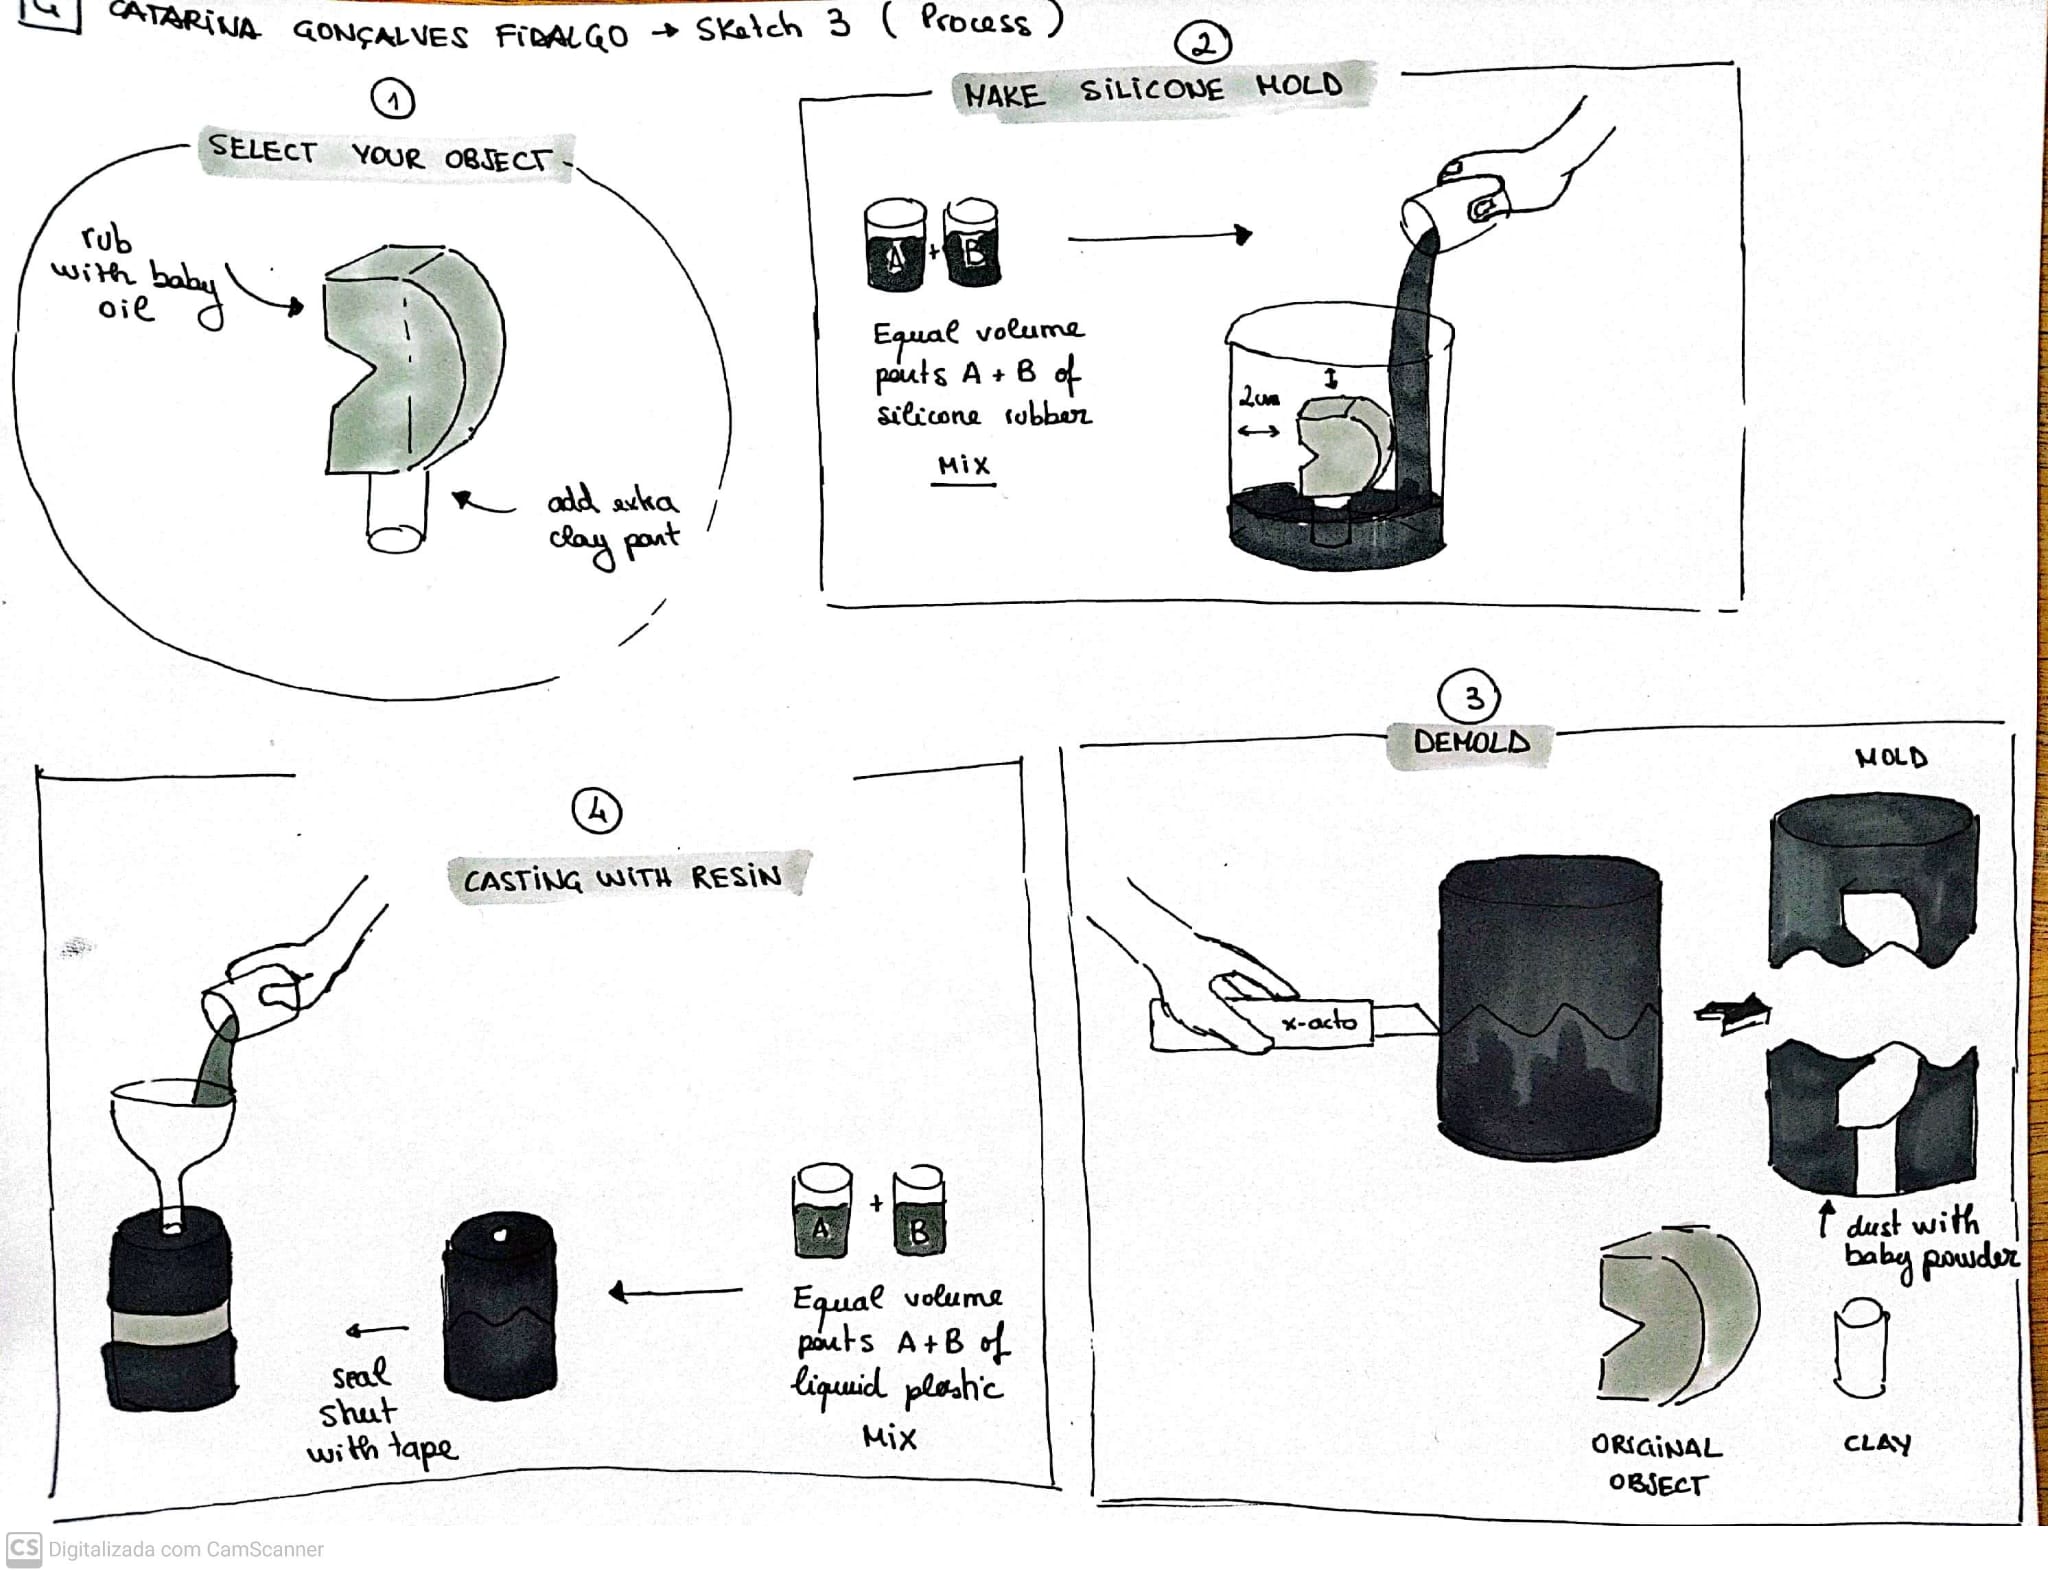 4 CATARINA GONÇALVES FIDALGO → Sketch 3 ( Process )
1
SELECT YOUR OBJECT
rub
with baby
oil
add extra
clay part
2
MAKE SILICONE MOLD
A + B
Equal volume
parts A + B of
silicone rubber
MIX
2cm
3
DEMOLD
MOLD
x-acto
dust with
baby powder
ORIGINAL
OBJECT
CLAY
4
CASTING WITH RESIN
A + B
Equal volume
parts A + B of
liquid plastic
MIX
seal
shut
with tape
CS Digitalizada com CamScanner